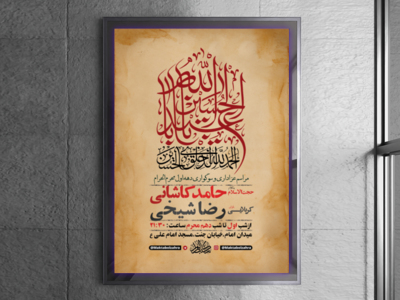 یا اباعبدالله الحسین
الحمدلله الذی خلق الحسین
مراسم عزاداری و سوگواری دهه اول محرم الحرام
حجت‌الاسلام حامد کاشانی
کربلایی رضا شیخی
از شب اول تا شب دهم محرم ساعت: ۲۱:۳۰
میدان امام، خیابان جنت، مسجد امام علی ع